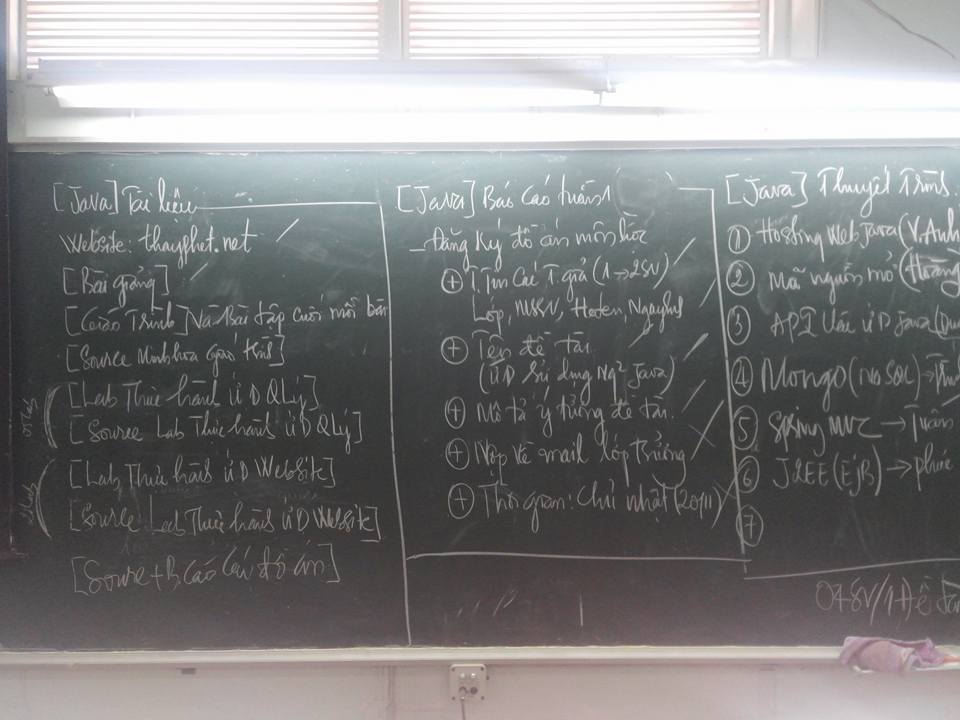 [Java] Tài liệu
Website: thayphet.net
[Bài giảng]
[Giáo Trình] Và Bài tập cuối mỗi bài
[Source Minh họa giáo trình]
[Lab Thực hành ƯD QLý]
[Source Lab Thực hành ƯD QLý]
[Lab Thực hành ƯD Website]
[Source Lab Thực hành ƯD Website]
[Soure + B Cáo Các đồ án]
[Java] Báo Cáo tuần 1
- Đăng Ký đồ án môn học
+ T.Tin Các T.giả (1→2SV)
Lớp, MSSV, Hoten, NgaySinh
+ Tên đề tài
(ƯD sử dụng Ng² Java)
+ Mô tả ý tưởng đề tài.
+ Nộp về mail lớp trưởng
+ Thời gian: Chủ nhật (20/11)
[Java] Thuyết Trình
1 Hosting Web Java (V.Anh
2 Mã nguồn mở (Hoàng
3 API Java
4 Mongo (No SQL) →
5 Spring MVC → Tuân
6 J2EE (EJB) → phúc
7